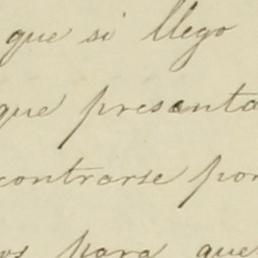 que si llego
que presenta
contrarse por
os para que